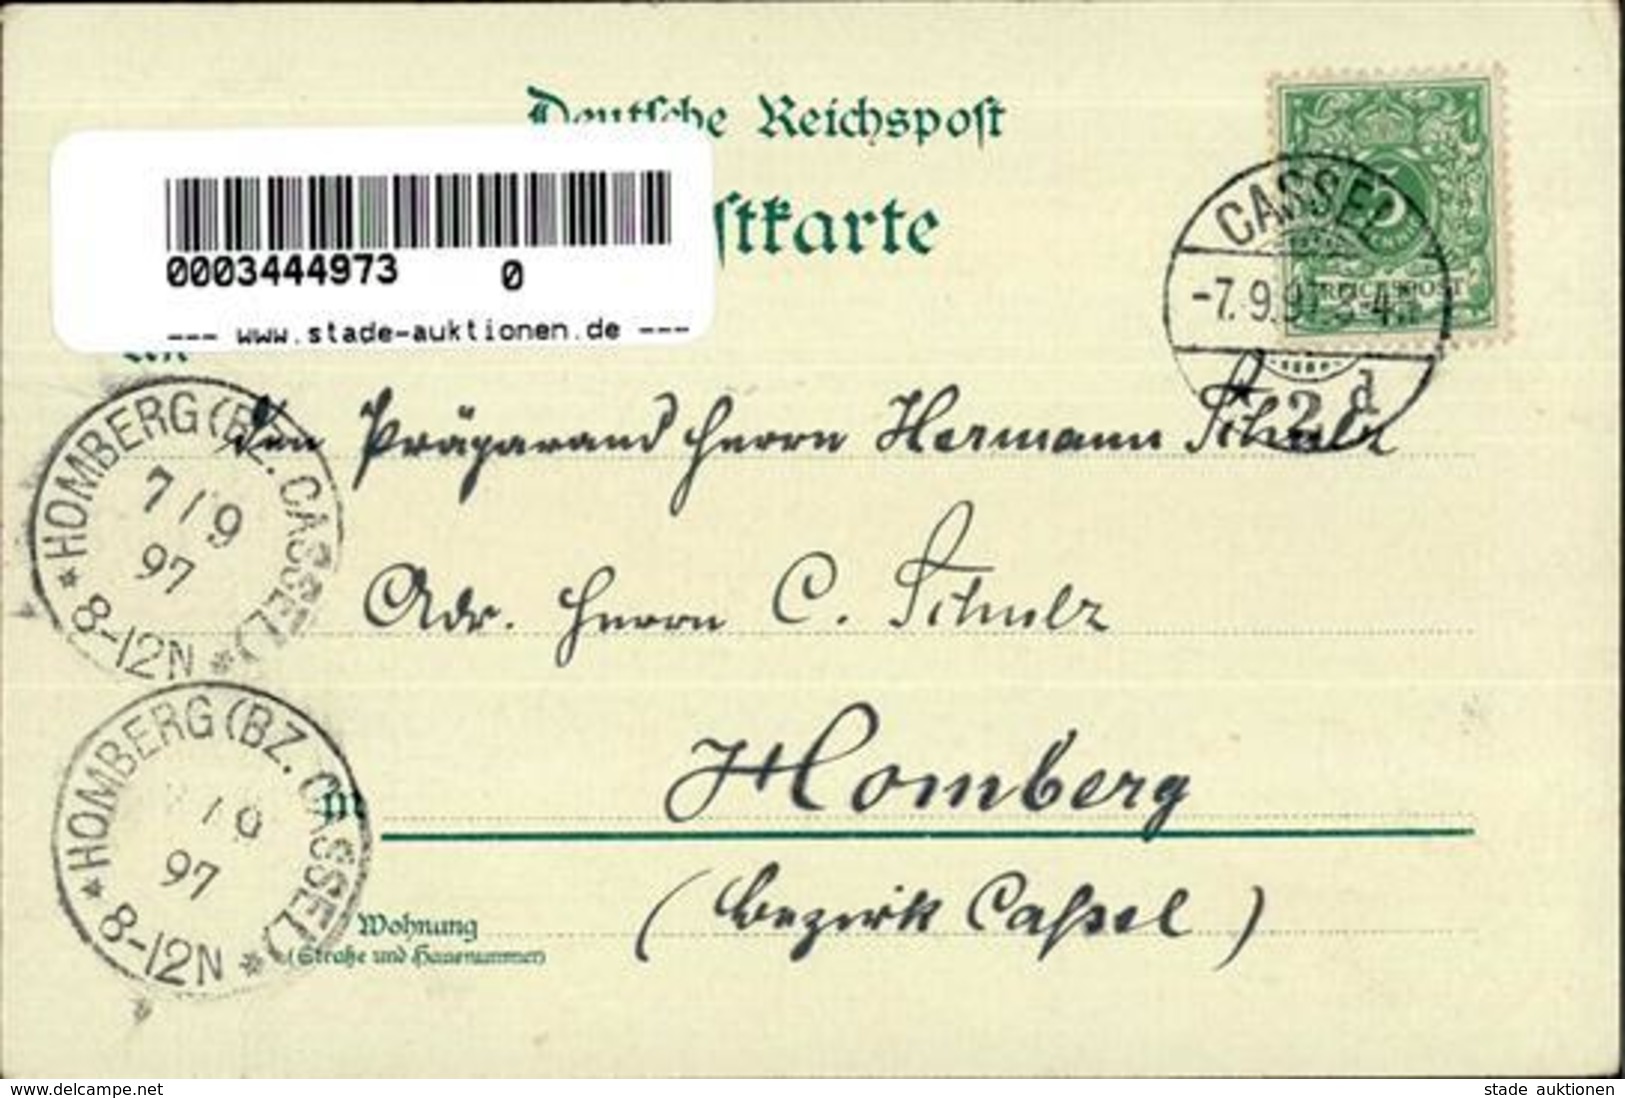 Deutsche Reichspost
stkarte
0003444973 0
--- www.stade-auktionen.de ---
An
CASSEL
-7.9.97. 3-4.N
* 2 d
5
REICHSPOST
den Präparand Herrn Hermann Schulz
HOMBERG (BZ. CASSEL)
7/9
97
* 8-12N *
Adr. Herrn C. Schulz
in Homberg
HOMBERG (BZ. CASSEL)
/9
97
* 8-12N *
(Bezirk Cassel)
Wohnung
(Straße und Hausnummer)
www.delcampe.net
stade auktionen